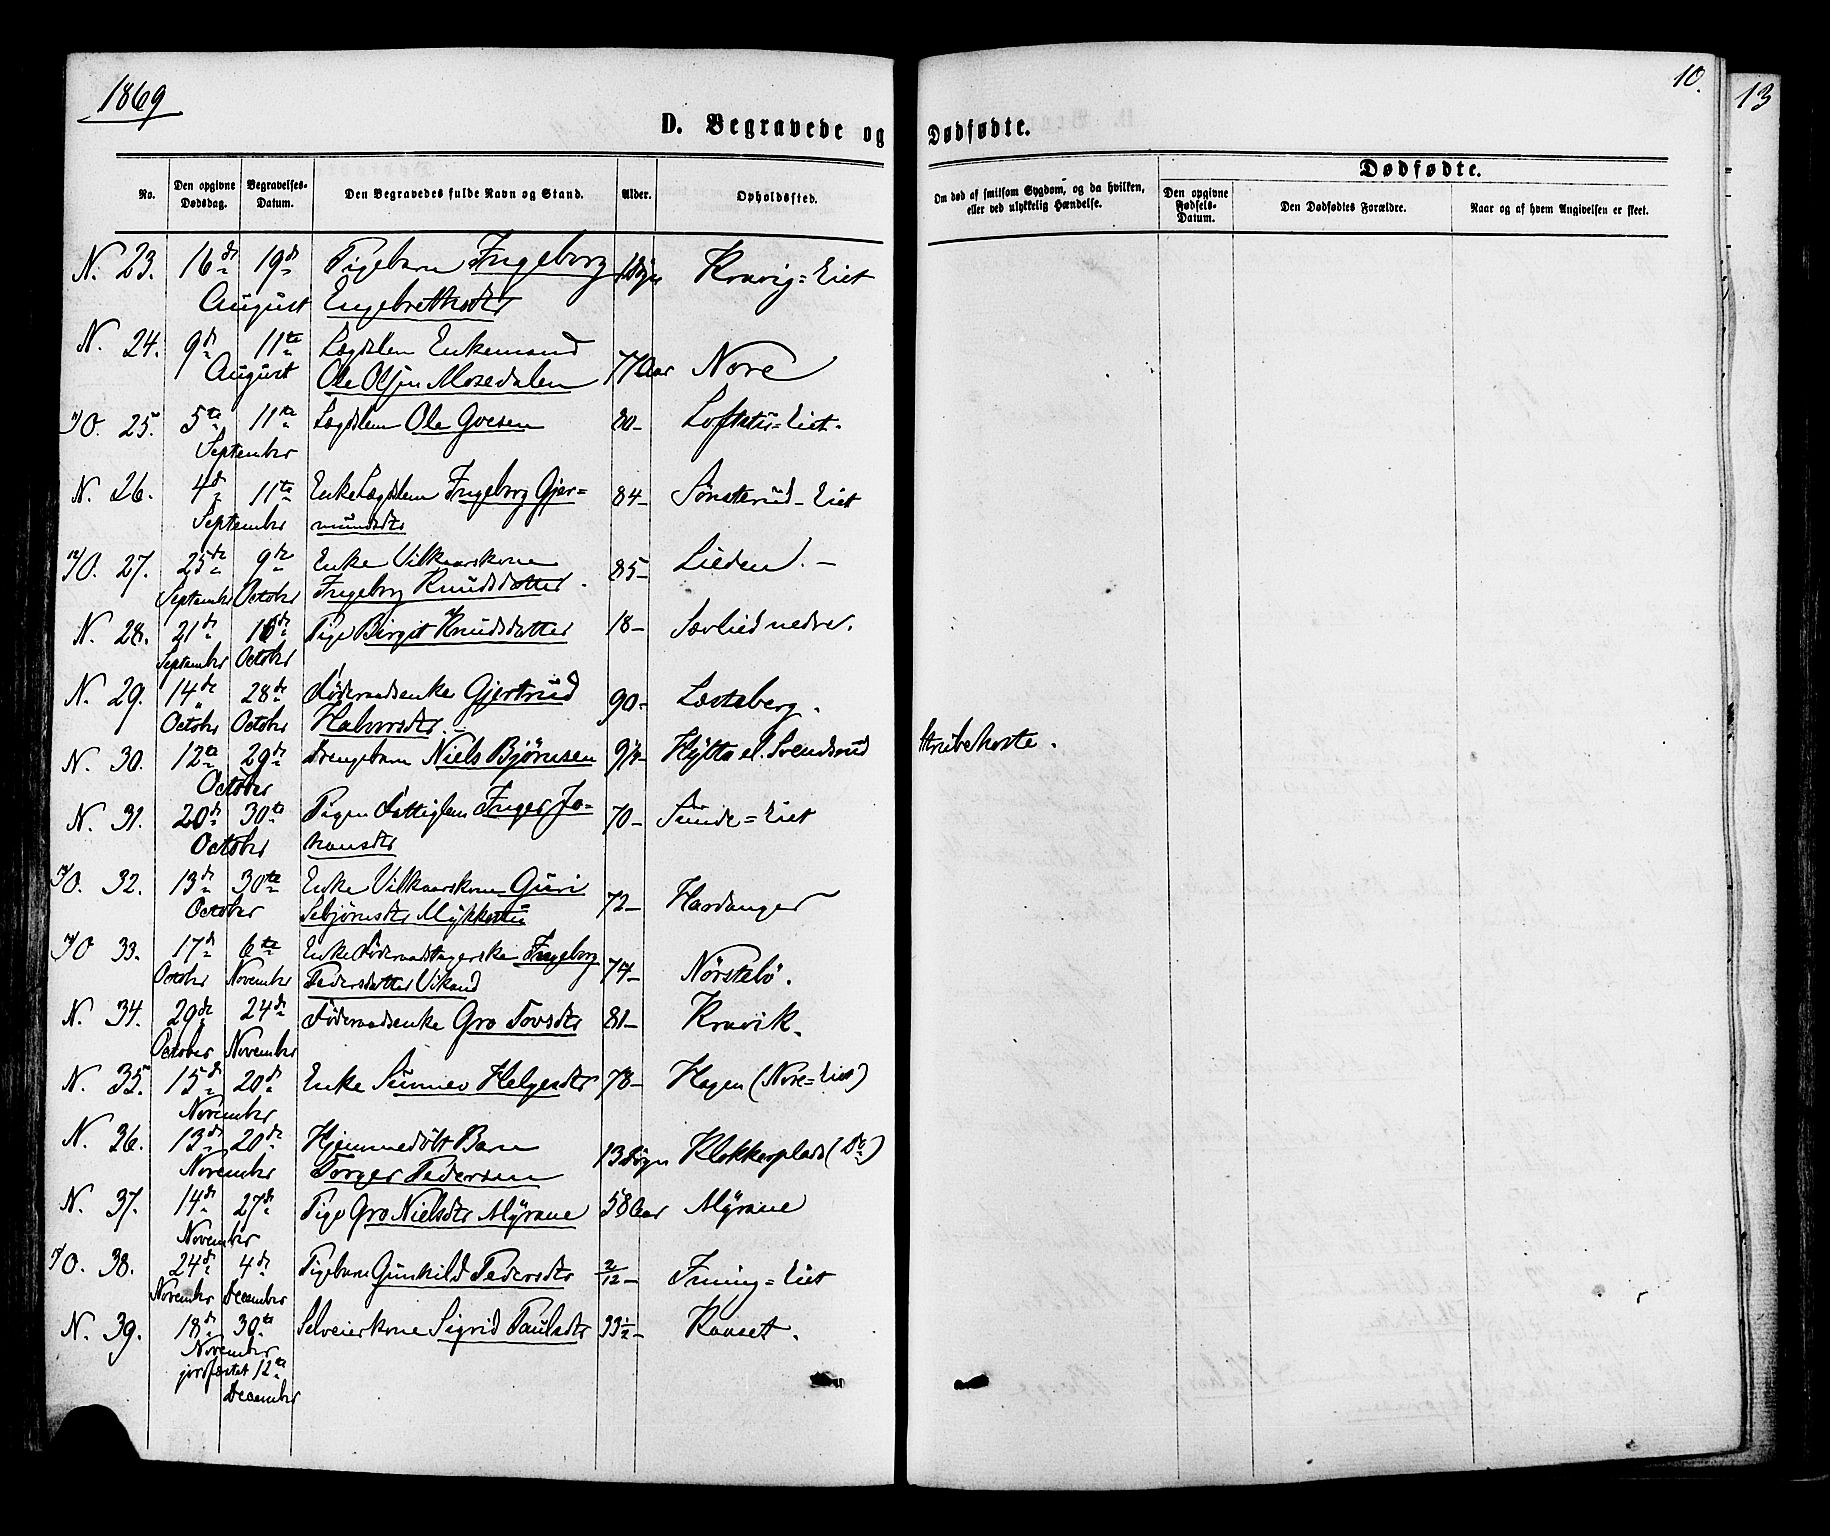 1869
10.
13
D. Begravede og Dødfødte.
No.
Den opgivne Dødsdag.
Begravelses-Datum.
Den Begravedes fulde Navn og Stand.
Alder.
Opholdssted.
Om død af smitsom Sygdom, og da hvilken, eller ved ulykkelig Hændelse.
Dødfødte.
Den opgivne Fødsels-Datum.
Den Dødfødtes Forældre.
Naar og af hvem Angivelsen er skeet.
N. 23. 16de 19de Pigebarn Ingeborg Kravig=Eiet
August Engebretsdtr
N. 24. 9de 11te Lægdslem Enkemand
August Ole Olsen Mosedalen 77 Aar Nore
O. 25. 5te 11te Lægdslem Ole 80- Eiet.
September
N. 26. 4de 11te Enke Lægdslem Ingeborg Gjer= 84- Sønsterud-Eiet
September mundsdtr
O. 27. 25de 9de Enke Vilkaarskone 85- Lieden.-
September October Ingeborg Knudsdatter.
N. 28. 21de 16de Pige Birgit Knudsdatter 18- Sævlied nedre.
September October
N. 29. 14de 28de Føderaadsenke Gjertrud 90-
October October Halvorsdtr.
N. 30. 12te 29de Drengebarn Niels Bjørnsen Hytta el. Svendsrud Strubehoste.
October
N. 31. 20de 30te Pigen Fattiglem Inger Jo= 70- Eiet
October hansdtr
O. 32. 13de 30te Enke Vilkaarskone Guri 72- Hardanger
October Sebjørnsdtr Mykkestu
O. 33. 17de 6te Enke Føderaadtagerske Ingeborg 74- Nørstebø.
October November Pedersdatter Vikand
N. 34. 29de 24de Føderaadsenke Gro Tovsdtr 81- Kravik.
October November
N. 35. 15de 20de Enke Sünnev Helgesdtr 78- Hagen (Nore=Eiet)
November
N. 36. 13de 20de Hjemmedøbt Barn 13 Døgn Klokkerplads (Do)
November Torger Pedersen
N. 37. 14de 27de Pige Gro Nielsdtr Myrane 58 Aar Myrane
November
O. 38. 24de 4de Pigebarn Gunhild Pedersdtr 2/12- Eiet
November December
N. 39. 18de 30te Selveierkone Sigrid Paulsdtr 33½- Raaset.
November
jordfæstet 12te
December